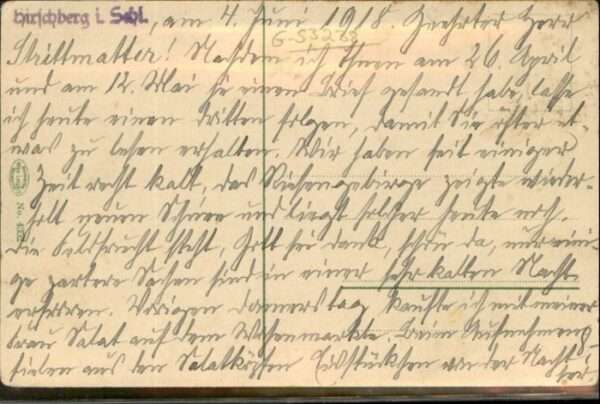 Hirschberg i. Schl., am 4. Juni 1918. Geehrter Herr
G-S3288
Strittmatter! Nachdem ich Ihnen am 26. April
und am 12. Mai je einen Brief gesandt habe, lasse
ich heute einen dritten folgen, damit Sie öfter et-
was zu lesen erhalten. Wir haben seit einiger
Zeit recht kalt, das Riesengebirge zeigte wieder-
holt neuen Schnee und liegt solcher heute noch.
Die Feldfrucht steht, Gott sei dank, schön da, nur eini-
ge zartere Sachen sind in einer sehr kalten Nacht
erfroren. Vorigen Donnerstag kaufte ich mit meiner
Frau Salat auf dem Wochenmarkte. Beim
fielen aus den Salatköpfen Eisstückchen von der Nacht
her